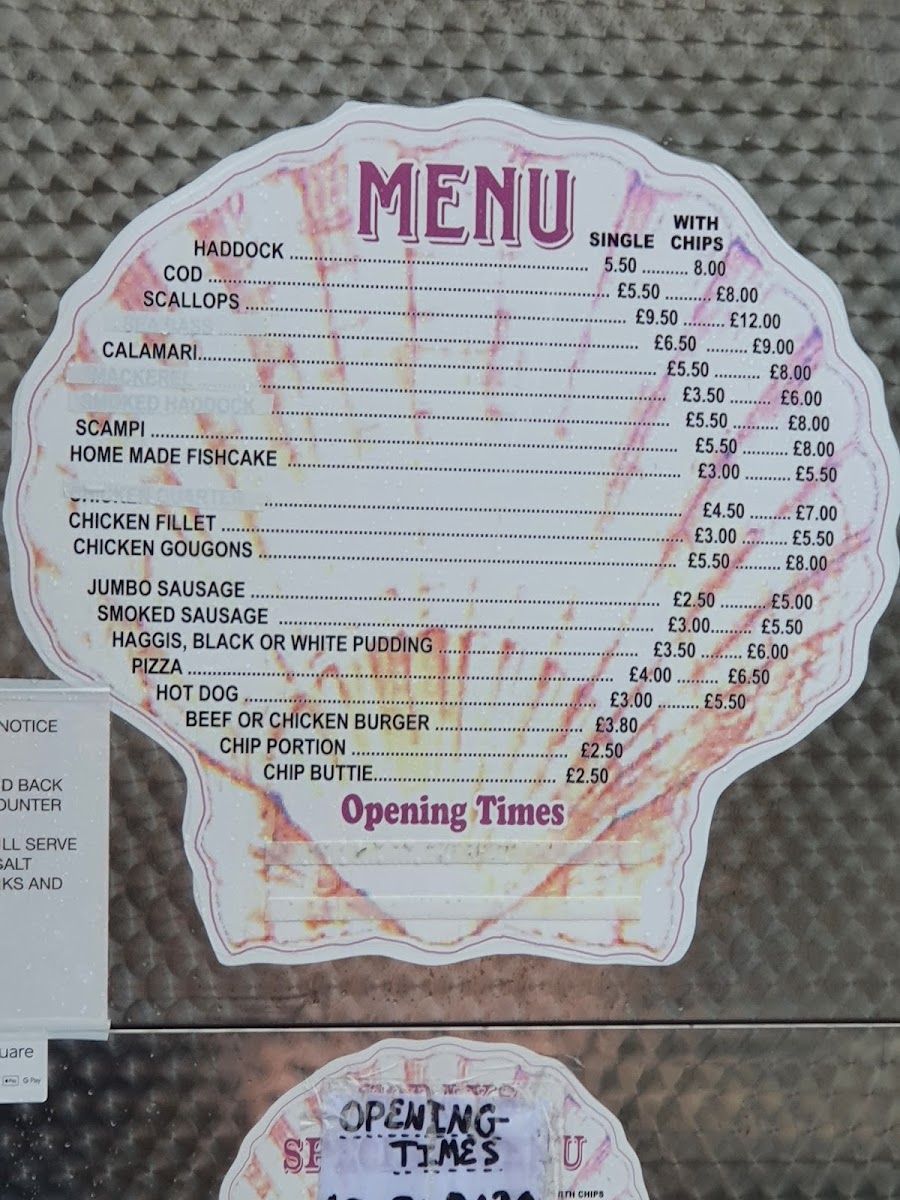 MENU
SINGLE WITH CHIPS
HADDOCK 5.50 8.00
COD £5.50 £8.00
SCALLOPS £9.50 £12.00
SEA BASS £6.50 £9.00
CALAMARI £5.50 £8.00
MACKEREL £3.50 £6.00
SMOKED HADDOCK £5.50 £8.00
SCAMPI £5.50 £8.00
HOME MADE FISHCAKE £3.00 £5.50
CHICKEN QUARTER £4.50 £7.00
CHICKEN FILLET £3.00 £5.50
CHICKEN GOUGONS £5.50 £8.00
JUMBO SAUSAGE £2.50 £5.00
SMOKED SAUSAGE £3.00 £5.50
HAGGIS, BLACK OR WHITE PUDDING £3.50 £6.00
PIZZA £4.00 £6.50
HOT DOG £3.00 £5.50
BEEF OR CHICKEN BURGER £3.80
CHIP PORTION £2.50
CHIP BUTTIE £2.50
Opening Times
NOTICE
D BACK
OUNTER
LL SERVE
SALT
KS AND
uare
Pay G Pay
OPENING-
TIMES
SP U
TH CHIPS